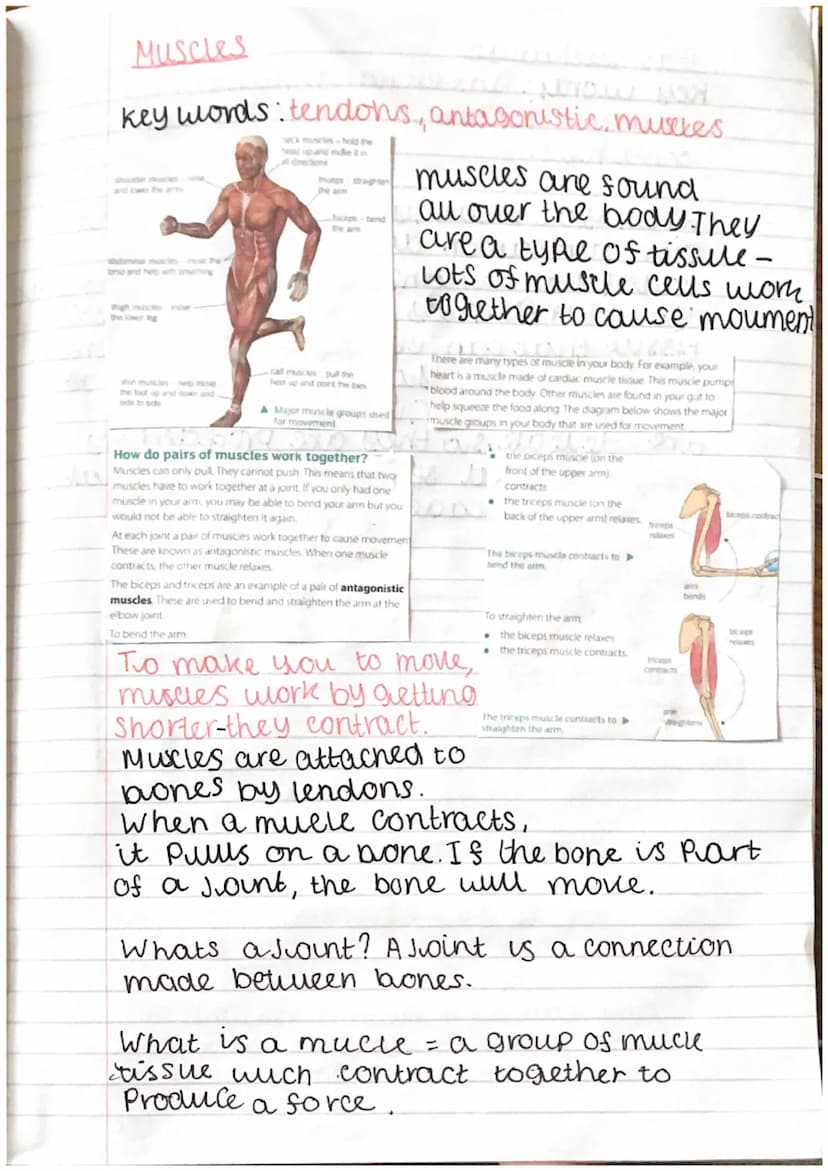 Muscles
Key words: tendons, antagonistic, muscles
neck muscles - hold the
head up and make it in
all directions
shoulder muscles raise
and lower the arms
triceps straighten
the arm
biceps - bend
the arm
abdominal muscles - move the
torso and help with breathing
thigh muscles move
the lower leg
calf muscles pull the
heel up and point the toes
shin muscles help move
the foot up and down and
side to side
▲ Major muscle groups used
for movement
muscles are found
all over the body. They
are a type of tissue -
lots of muscle cells work
together to cause moument
There are many types of muscle in your body. For example, your
heart is a muscle made of cardiac muscle tissue. This muscle pumps
blood around the body. Other muscles are found in your gut to
help squeeze the food along. The diagram below shows the major
muscle groups in your body that are used for movement.
How do pairs of muscles work together?
Muscles can only pull. They cannot push. This means that two
muscles have to work together at a joint. If you only had one
muscle in your arm, you may be able to bend your arm but you
would not be able to straighten it again.
At each joint a pair of muscles work together to cause movemen
These are known as antagonistic muscles. When one muscle
contracts, the other muscle relaxes.
The biceps and triceps are an example of a pair of antagonistic
muscles. These are used to bend and straighten the arm at the
elbow joint.
To bend the arm
• the biceps muscle (on the
front of the upper arm)
contracts
• the triceps muscle (on the
back of the upper arm) relaxes.
The biceps muscle contracts to ▶
bend the arm.
biceps contract
triceps
relaxes
arm
bends
To straighten the arm:
• the biceps muscle relaxes
• the triceps muscle contracts.
The triceps muscle contracts to ▶
straighten the arm.
biceps
relaxes
triceps
contracts
arm
straightens
To make you to move,
muscles work by getting
shorter-they contract.
Muscles are attached to
bones by tendons.
When a mucle contracts,
it pulls on a bone. If the bone is part
of a joint, the bone will move.
Whats a joint? A joint is a connection
made between bones.
What is a mucle = a group of mucle
tissue wich contract together to
produce a force.